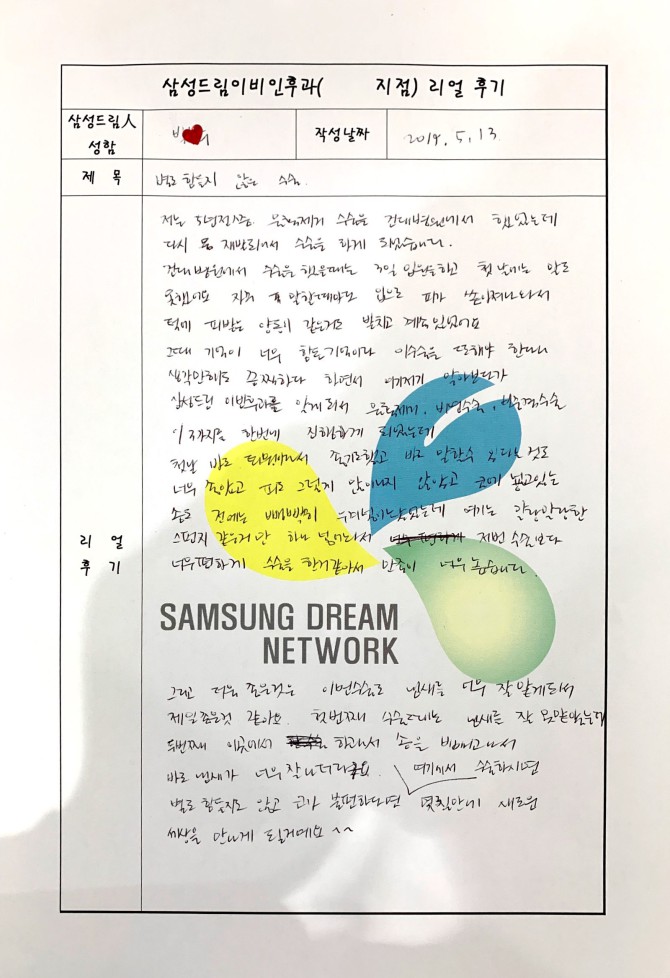 삼성드림이비인후과(          지점) 리얼 후기
삼성드림人
성함
박
작성날짜
2019. 5. 13
제 목
별로 힘들지 않은 수술.
리 얼
후 기
저는 5년전쯤 물혹제거 수술을 건대병원에서 했었는데
다시 재발해서 수술을 하게 되었습니다.
건대병원에서 수술을 했을때는 3일 입원하고 첫날에는 말도
못했어요 자꾸 말할때마다 입으로 피가 쏟아져나와서
턱에 피받는 양동이 같은거도 받치고 계속있었어요
그때 기억이 너무 힘든기억이라 이수술을 또해야 한다니
생각만해도 끔찍하다 하면서 여기저기 알아보다가
삼성드림 이비인후과를 알게되서 물혹제거, 비염수술, 비중격수술
이 3가지를 한번에 진행하게 되었는데
첫날 바로 퇴원해서 좋기도했고 바로 말할수 있다는 점도
너무 좋았고 피도 그렇게 많이나지 않았고 코에 넣고있는
솜도 전에는 빽빽히 넣었는데 여기는 말랑말랑한
스펀지 같은거만 하나 넘겨놔서 저번 수술보다
너무편하게 수술을 한거같아서 만족이 너무 높습니다.
SAMSUNG DREAM
NETWORK
그리고 더욱 좋은것은 이번수술로 냄새를 너무 잘 맡게되서
제일좋은것 같아요. 첫번째 수술때는 냄새를 잘 못맡았는데
두번째 이곳에서 하고나서 솜을 빼고나서
바로 냄새가 너무 잘나더라구요. 여기에서 수술하시면
별로 힘들지도 않고 코가 불편하다면 몇칠안에 새로운
세상을 만나게 될거예요 ^^